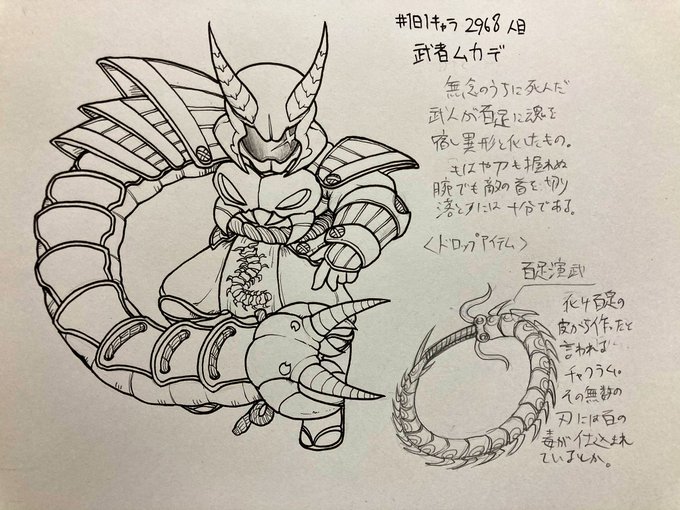 #1日1キャラ 2968人目
武者ムカデ
無念のうちに死んだ
武人が百足に魂を
宿し異形と化したもの。
もはや刀も握れぬ
腕でも敵の首を切り
落とすには十分である。
<ドロップアイテム>
百足演武
化け百足の
皮から作ったと
言われれば…
チャクラム。
その無数の
刃には百の
毒が仕込まれ
ているとか。